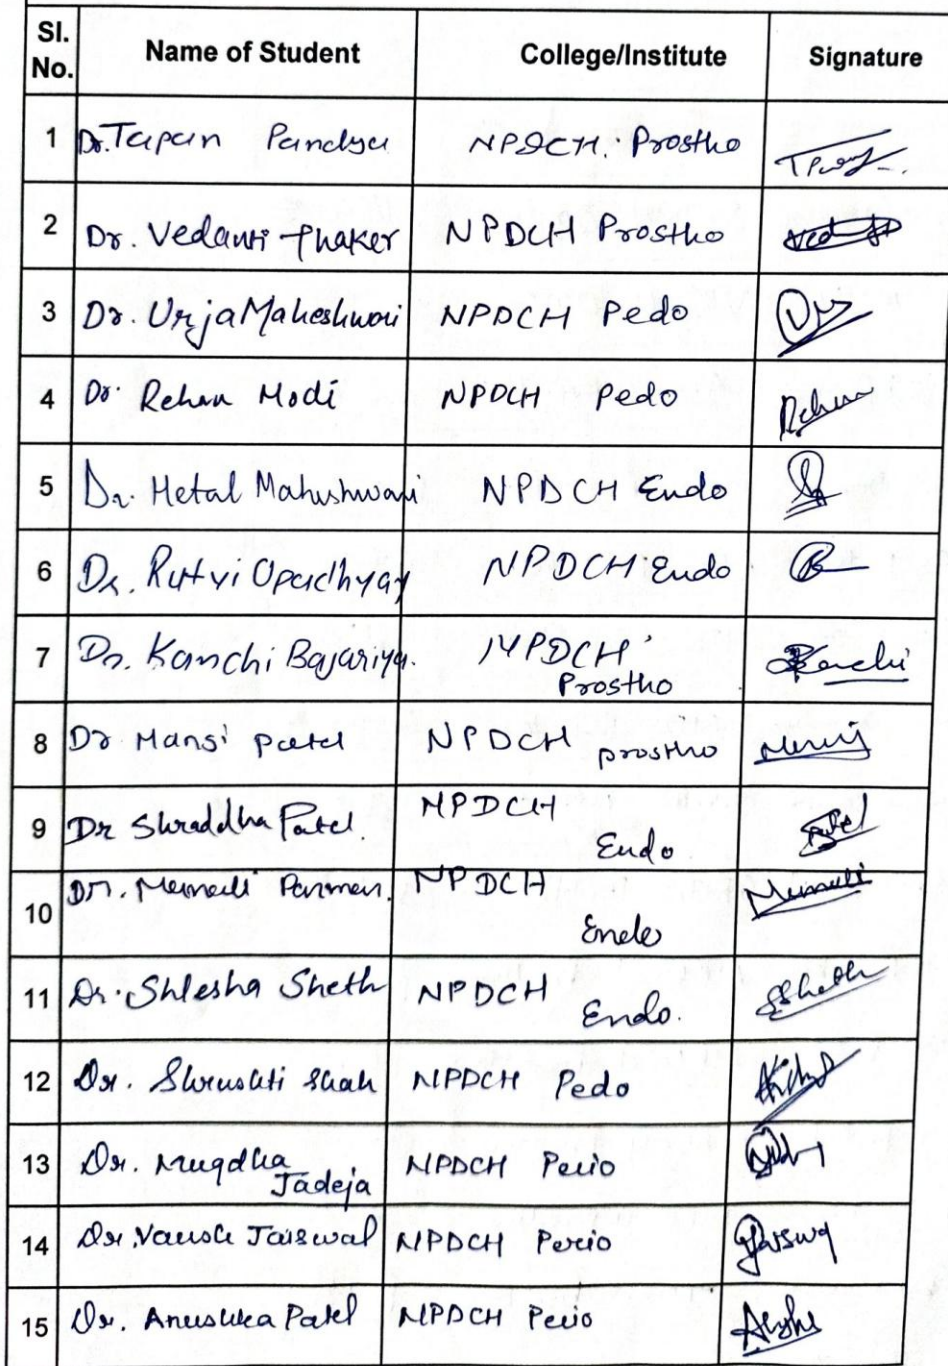 Sl. No. Name of Student College/Institute Signature
1 Dr. Tapan Pandya NPDCH. Prostho
2 Dr. Vedanti Thaker NPDCH Prostho
3 Dr. Urja Maheshwari NPDCH Pedo
4 Dr Rehan Modi NPDCH Pedo Rehan
5 Dr. Hetal Maheshwari NPDCH Endo
6 Dr. Rutvi Upadhyay NPDCH Endo
7 Dr. Kanchi Bajariya. NPDCH Prostho Kanchi
8 Dr Mansi patel NPDCH prostho
9 Dr Shraddha Patel. NPDCH Endo Patel
10 Dr. Parmar NPDCH Endo
11 Dr. Shlesha Sheth NPDCH Endo. Sheth
12 Dr. Shrushti Shah NPDCH Pedo
13 Dr. Mugdha Jadeja NPDCH Perio
14 Dr. Vansh Jaiswal NPDCH Perio
15 Dr. Anushka Patel NPDCH Perio